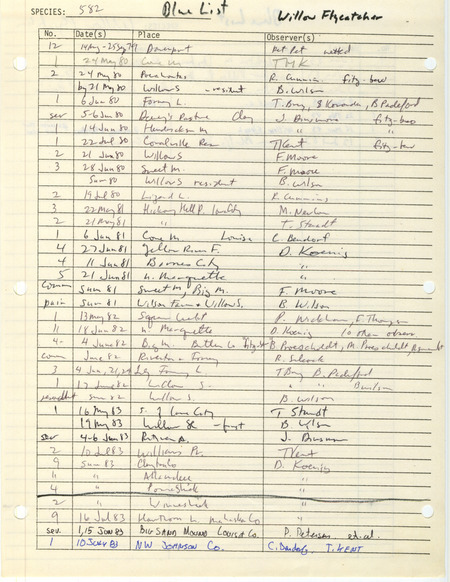 SPECIES: 582 Blue List Willow Flycatcher
No. Date(s) Place Observer(s)
12 14May-25Sep79 Davenport Pet Pet netted
1 24 May 80 Cone M TMK
2 24 May 80 Pocahontas R. Cummins fitz-bew
by 21 May 80 Willow S - resident B. Wilson
1 6 Jun 80 Forney L. T. Bray,
sev 5-6 Jun 80 Dewey's Pasture Clay J. Dinsmore fitz-beo
1 14 Jun 80 Hendrickson M "
1 22 Jul 80 Coralville Res T Kent fitz-bew
2 21 Jun 80 Willow S F. Moore
3 28 Jun 80 Sweet M. F. Moore
Sum 80 Willow S resident B. Wilson
2 19 Jul 80 Lizard L. R. Cummins
3 22 May 81 Hickory Hill P. M. Newlon
2 21 May 81 " T. Staudt
1 6 Jun 81 Cone M. Louisa C. Bendorf
4 27 Jun 81 Yellow River F. D. Koenig
4 11 Jun 81 Boone City "
5 21 Jun 81 N. Marquette "
Common Sum 81 Sweet M Big M. F. Moore
pair Sum 81 Willow S. B Wilson
1 13 May 82 P. Meckham, F. Thompson
11 18 Jun 82 N Marquette D. Koenig 10 other observ
4 4 Jun 82 Big M. Butler Co B. Proescholdt, M. Proescholdt,
com June 82 Riverton + Forney R. Silcock
3 4 Jun, 21, Forney L T Bray B. Padelford
1 17 June 82 Willow S. " " B. Wilson
resident Sum 82 Willow S. B. Wilson
1 16 May 83 S. of Iowa City T Staudt
19 May 83 Willow Sl - first B Wilson
sev 4-6 Jun 83 J. Dinsmore
2 10 Jul 83 Williams Pr. T Kent
9 Sum 83 Clayton Co D. Koenig
4 " Allamakee "
4 " Poweshiek "
2 " Winneshiek "
9 16 Jul 83 Hawthorn L Mahaska Co "
sev. 1, 15 Jun 83 BIG SAND MOUND LOUISA CO. P. Petersen et al.
1 10 July 83 NW JOHNSON CO. C. Bendorf, T. KENT